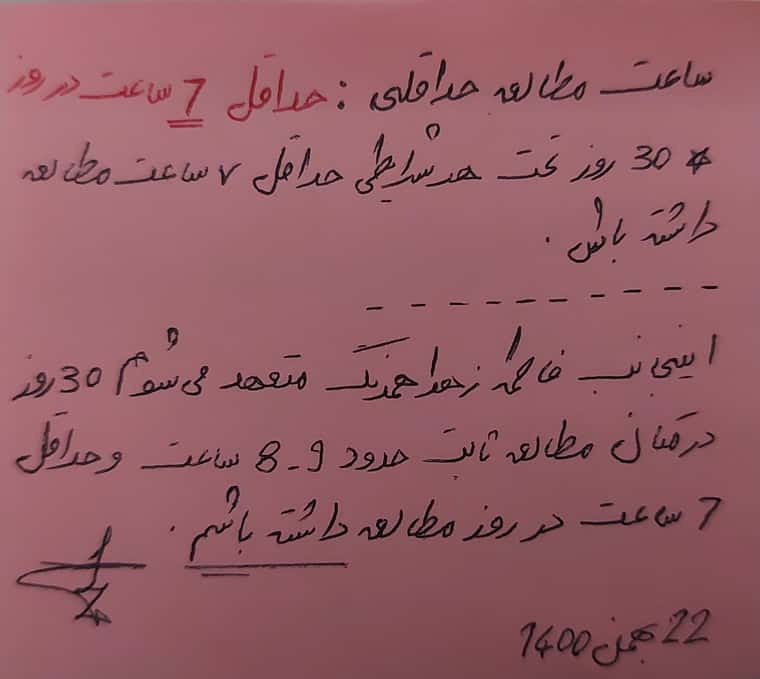 ساعت مطالعه حداقلی : حداقل 7 ساعت در روز
* 30 روز تحت هر شرایطی حداقل ۷ ساعت مطالعه
داشته باش .
اینجانب فاطمه زهرا احمدبیگ متعهد می شوم 30 روز
در کنار مطالعه ثابت حدود 9 - 8 ساعت و حداقل
7 ساعت در روز مطالعه داشته باشم .
22 بهمن 1400